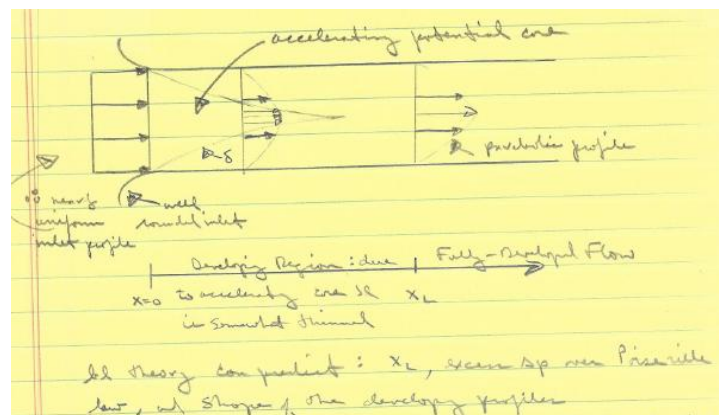 accelerating potential core
δ
parabolic profile
∴ nearly
uniform
inlet profile
well
rounded inlet
Developing Region: due
Fully-Developed Flow
x=0 to accelerating core bl xL
is somewhat thinned
bl theory can predict: xL, excess Δp over Poiseuille
law, and shape of the developing profiles